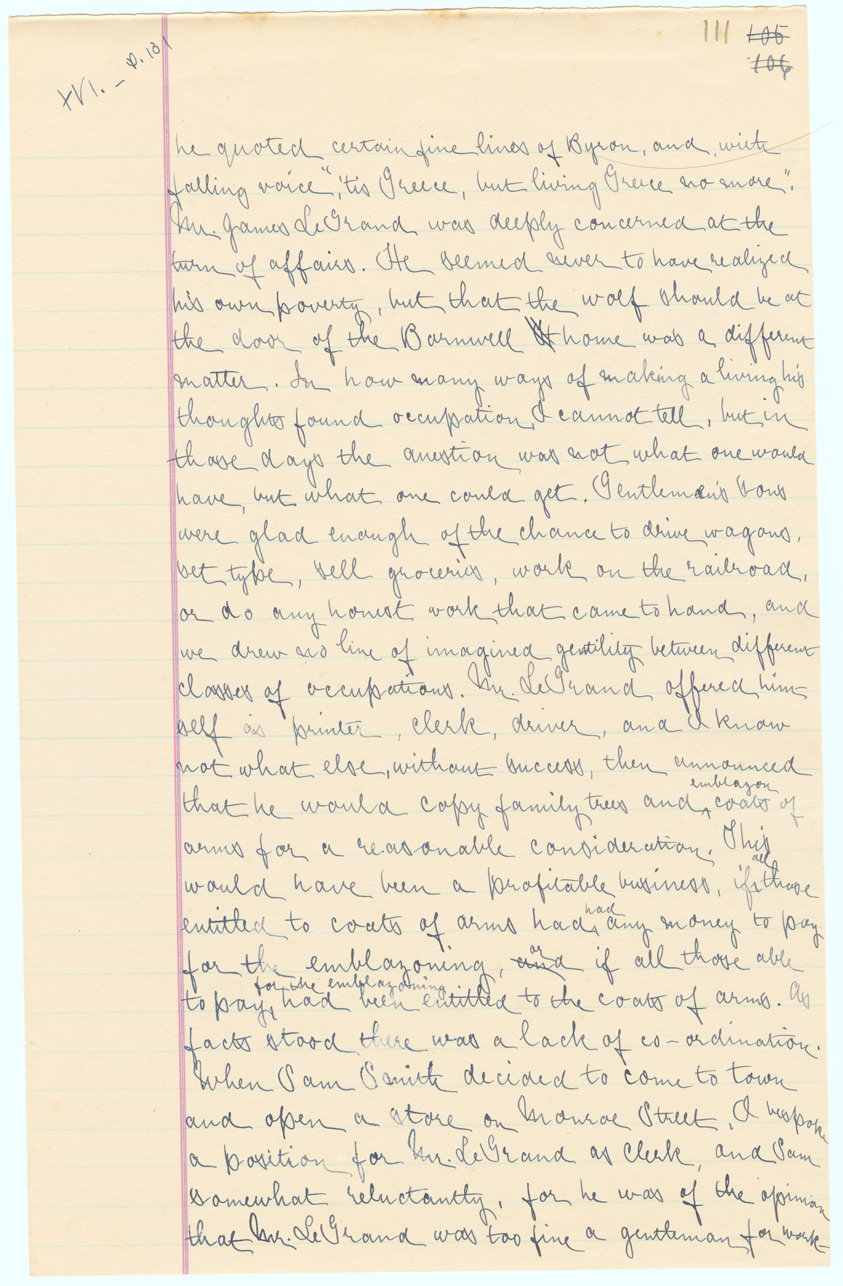 111 105
106
XVI. — p. 131
he quoted certain fine lines of Byron, and, with
falling voice "'tis Greece, but living Greece no more".
Mr. James LeGrand was deeply concerned at the
turn of affairs. He seemed never to have realized
his own poverty, but that the wolf should be at
the door of the Barnwell home was a different
matter. In how many ways of making a living his
thoughts found occupation, I cannot tell, but in
those days the question was not what one would
have, but what one could get. Gentlemen's sons
were glad enough of the chance to drive wagons,
set type, sell groceries, work on the railroad,
or do any honest work that came to hand, and
we drew no line of imagined gentility between different
classes of occupations. Mr. LeGrand offered him-
self as printer, clerk, driver, and I know
not what else, without success, then announced
emblazon
that he would copy family trees and coats of
arms for a reasonable consideration. This
all
would have been a profitable business, if those
had
entitled to coats of arms had any money to pay
or
for the emblazoning, and if all those able
for the emblazoning
to pay, had been entitled to the coats of arms. As
facts stood there was a lack of co-ordination.
When Sam Smith decided to come to town
and open a store on Monroe Street, I bespoke
a position for Mr. LeGrand as clerk, and Sam
somewhat reluctantly, for he was of the opinion
that Mr. LeGrand was too fine a gentleman for work